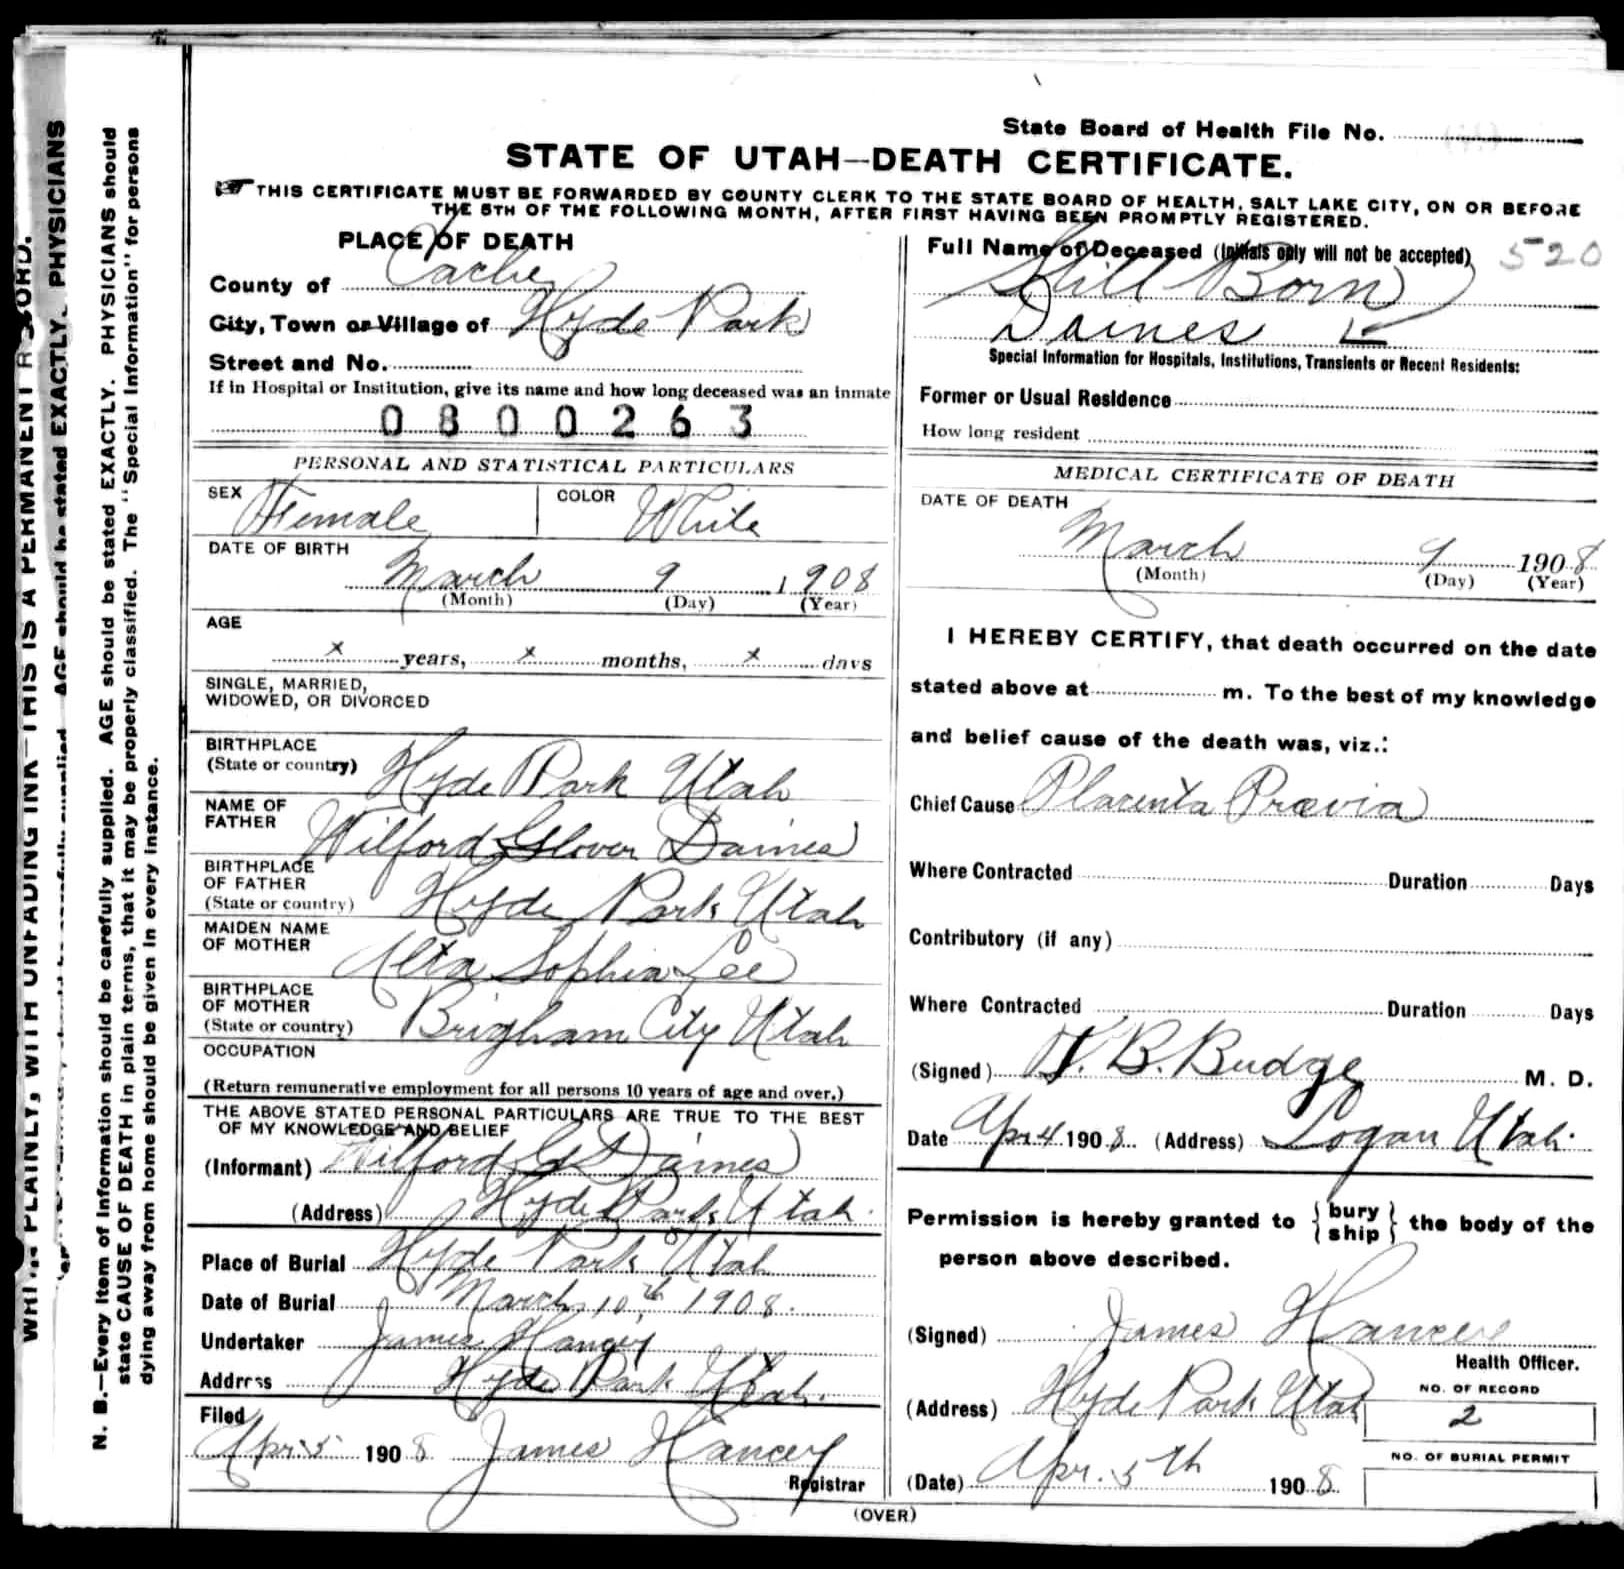 State Board of Health File No.
STATE OF UTAH—DEATH CERTIFICATE.
THIS CERTIFICATE MUST BE FORWARDED BY COUNTY CLERK TO THE STATE BOARD OF HEALTH, SALT LAKE CITY, ON OR BEFORE
THE 5TH OF THE FOLLOWING MONTH, AFTER FIRST HAVING BEEN PROMPTLY REGISTERED.
PLACE OF DEATH
County of Cache
City, Town or Village of Hyde Park
Street and No.
If in Hospital or Institution, give its name and how long deceased was an inmate
0800263
PERSONAL AND STATISTICAL PARTICULARS
SEX Female COLOR White
DATE OF BIRTH
March 9 1908
(Month) (Day) (Year)
AGE
x years, x months, x days
SINGLE, MARRIED,
WIDOWED, OR DIVORCED
BIRTHPLACE
(State or country) Hyde Park Utah
NAME OF
FATHER Wilford Glover Daines
BIRTHPLACE
OF FATHER
(State or country) Hyde Park Utah
MAIDEN NAME
OF MOTHER Alta Sophia Lee
BIRTHPLACE
OF MOTHER
(State or country) Brigham City Utah
OCCUPATION
(Return remunerative employment for all persons 10 years of age and over.)
THE ABOVE STATED PERSONAL PARTICULARS ARE TRUE TO THE BEST
OF MY KNOWLEDGE AND BELIEF
(Informant) Wilford G Daines
(Address) Hyde Park Utah.
Place of Burial Hyde Park Utah
Date of Burial March 10th 1908.
Undertaker James Hancey
Address Hyde Park Utah.
Filed
Apr 5 1908 James Hancey
Registrar
Full Name of Deceased (Initials only will not be accepted) 520
Still Born
Daines
Special Information for Hospitals, Institutions, Transients or Recent Residents:
Former or Usual Residence
How long resident
MEDICAL CERTIFICATE OF DEATH
DATE OF DEATH
March 9 1908
(Month) (Day) (Year)
I HEREBY CERTIFY, that death occurred on the date
stated above at m. To the best of my knowledge
and belief cause of the death was, viz.:
Chief Cause Placenta Prævia
Where Contracted Duration Days
Contributory (if any)
Where Contracted Duration Days
(Signed) B. Budge M. D.
Date Apr 4 1908. (Address) Logan Utah.
Permission is hereby granted to { bury
ship } the body of the
person above described.
(Signed) James Hancey
Health Officer.
(Address) Hyde Park Utah
NO. OF RECORD
2
NO. OF BURIAL PERMIT
(Date) Apr. 5th 1908.
(OVER)
N. B.—Every item of information should be carefully supplied. AGE should be stated EXACTLY. PHYSICIANS should
state CAUSE OF DEATH in plain terms, that it may be properly classified. The "Special Information" for persons
dying away from home should be given in every instance.
PLAINLY, WITH UNFADING INK—THIS IS A PERMANENT
AGE should be stated EXACTLY. PHYSICIANS